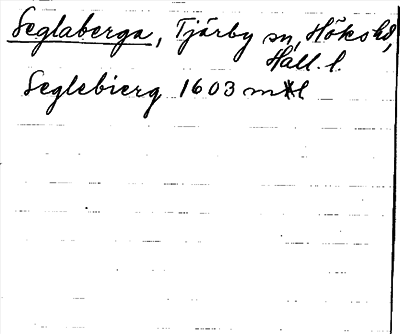 Seglaberga, Tjärby sn, Höks hd,
Hall. l.
Seglebierg 1603 mtl